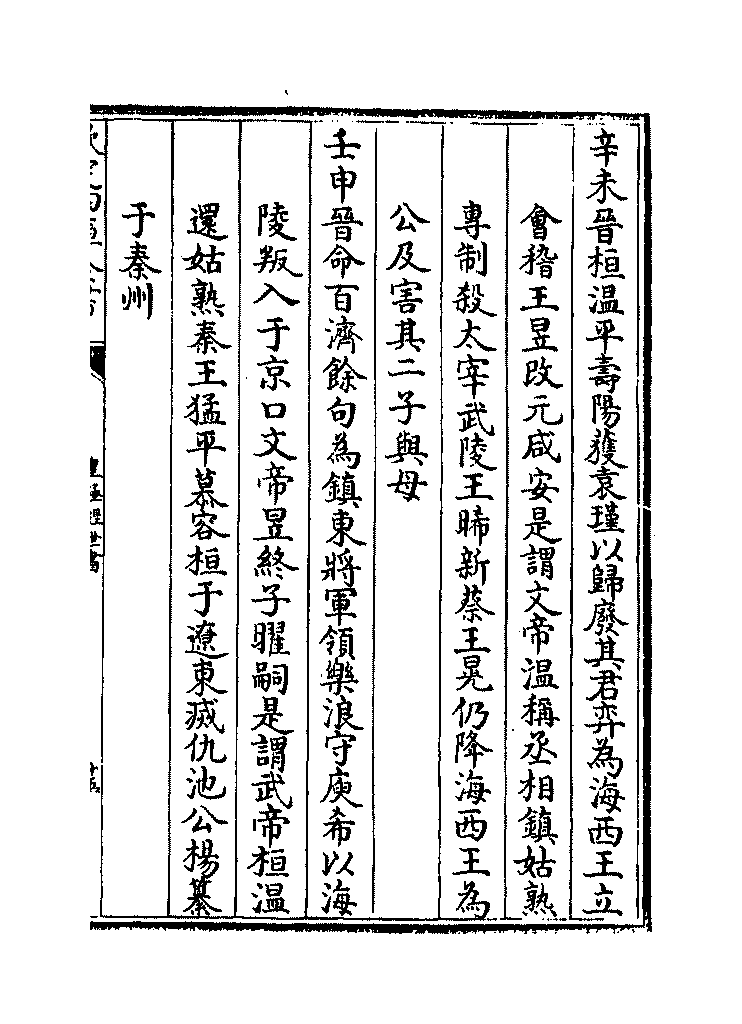 辛未晉桓温平壽陽獲袁瑾以歸廢其君弈為海西王立
會稽王昱改元咸安是謂文帝温稱丞相鎮姑熟
專制殺太宰武陵王晞新蔡王晃仍降海西王為
公及害其二子與母
壬申晉命百濟餘句為鎮東將軍領樂浪守庾希以海
陵叛入于京口文帝昱終子曜嗣是謂武帝桓温
還姑熟秦王猛平慕容桓于遼東㓕仇池公楊纂
于秦州
皇極經世書